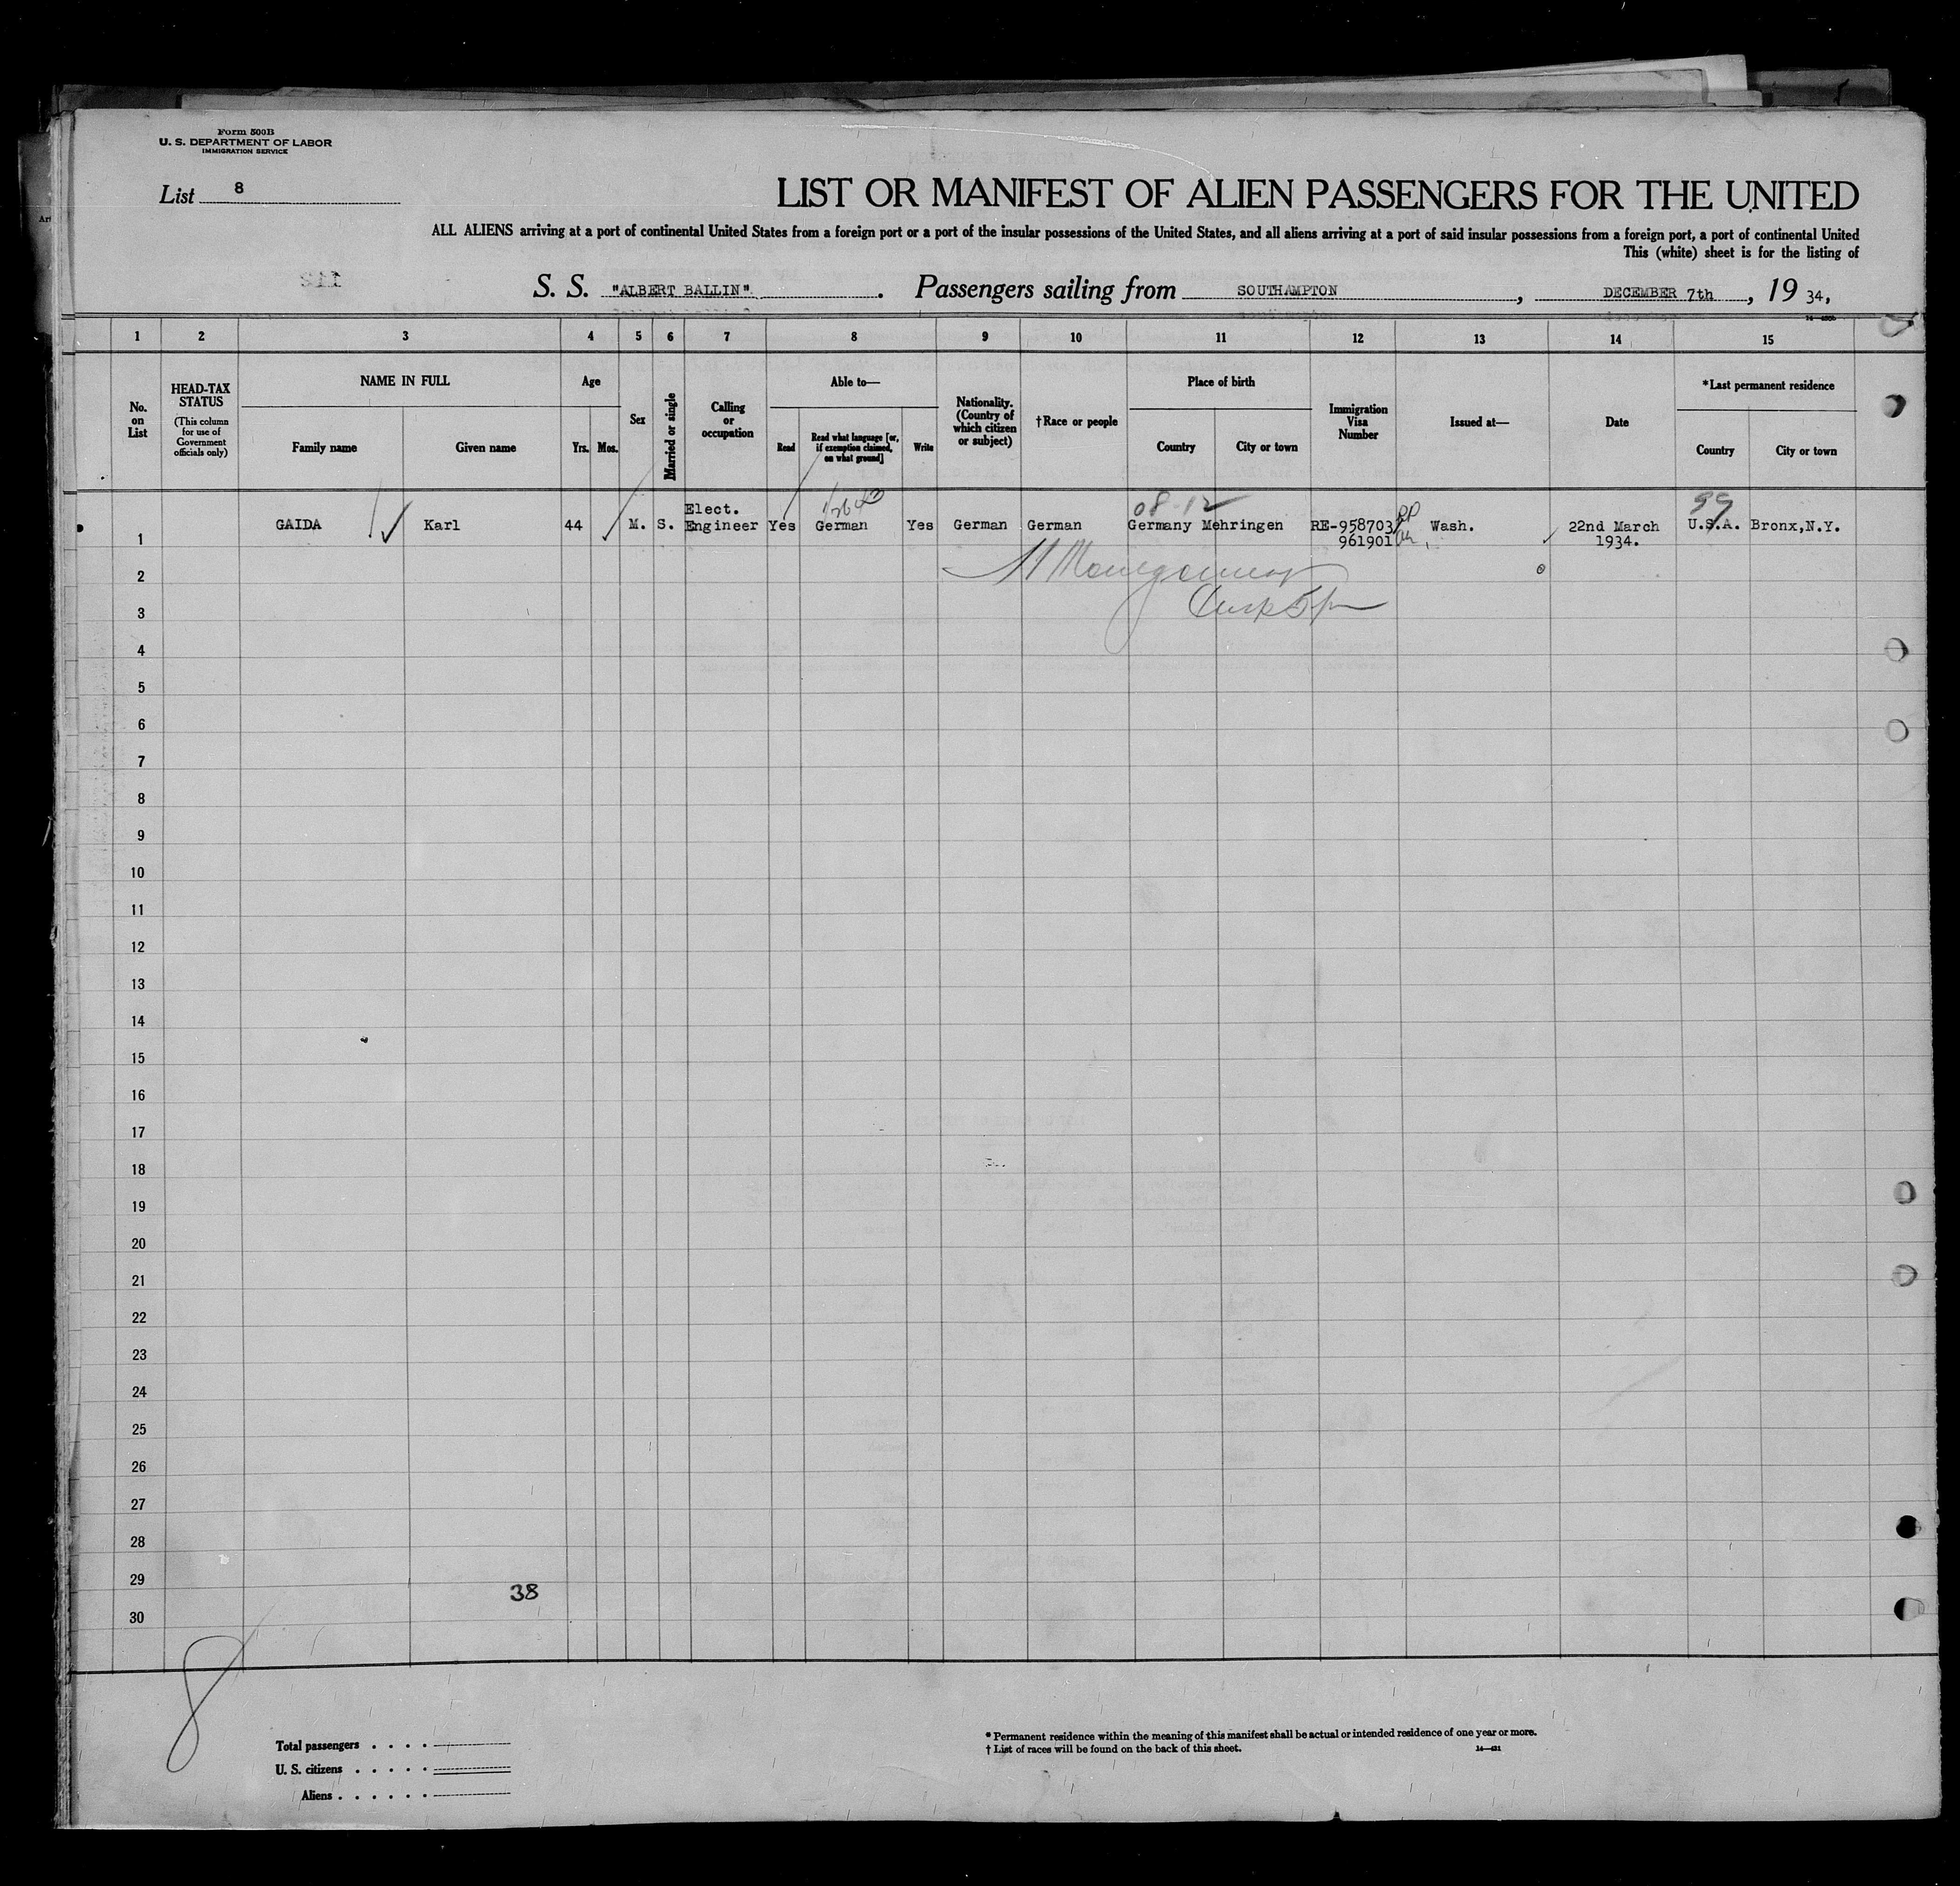 Form 500B
U. S. DEPARTMENT OF LABOR
IMMIGRATION SERVICE
List 8
LIST OR MANIFEST OF ALIEN PASSENGERS FOR THE UNITED
ALL ALIENS arriving at a port of continental United States from a foreign port or a port of the insular possessions of the United States, and all aliens arriving at a port of said insular possessions from a foreign port, a port of continental United
This (white) sheet is for the listing of
S. S. "ALBERT BALLIN". Passengers sailing from SOUTHAMPTON, DECEMBER 7th, 1934,
1 2 3 4 5 6 7 8 9 10 11 12 13 14 15
No. on List
HEAD-TAX STATUS
(This column for use of Government officials only)
NAME IN FULL
Family name
Given name
Age
Yrs. Mos.
Sex
Married or single
Calling or occupation
Able to—
Read
Read what language [or, if exemption claimed, on what ground]
Write
Nationality. (Country of which citizen or subject)
†Race or people
Place of birth
Country
City or town
Immigration Visa Number
Issued at—
Date
*Last permanent residence
Country
City or town
08-12
99
1 GAIDA Karl 44 M. S. Elect. Engineer Yes German Yes German German Germany Mehringen RE-958703/ 961901 Wash. 22nd March 1934. U.S.A. Bronx,N.Y.
2
3
4
5
6
7
8
9
10
11
12
13
14
15
16
17
18
19
20
21
22
23
24
25
26
27
28
29
38
30
8
Total passengers . . . .
U. S. citizens . . . . .
Aliens . . . . . .
* Permanent residence within the meaning of this manifest shall be actual or intended residence of one year or more.
† List of races will be found on the back of this sheet.